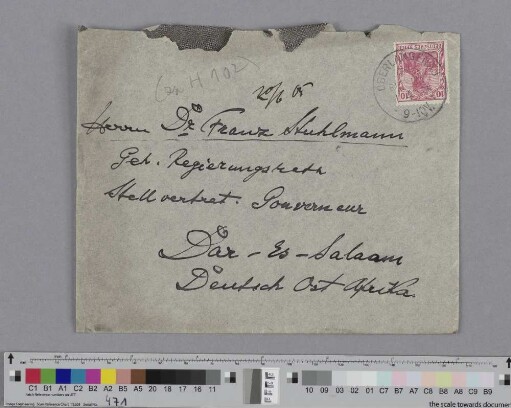 (zu H 102)
20/6 05
9-10V.
Herrn Dr. Franz Stuhlmann
Geh. Regierungsrath
Stellvertret. Gouverneur
Dar-Es-Salaam
Deutsch Ost Afrika.
C1 B1 A1 C2 B2 A2 B5 A5 20 18 17 16 11
10 09 03 02 01 C7 B7 A7 C8 B8 A8 C9 B9
471
the scale towards document